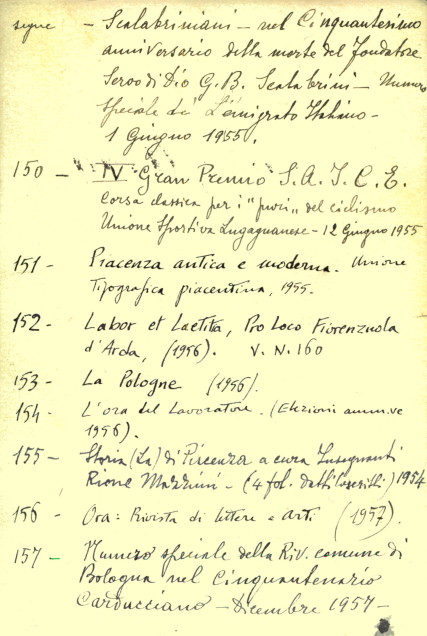 segue - Scalabriniani - nel Cinquantesimo
anniversario della morte del fondatore
Servo di Dio G.B. Scalabrini - Numero
speciale di L'emigrato Italiano -
1 Giugno 1955.
150 - IV Gran Premio S.A.I.C.E.
Corsa classica per i "puri" del ciclismo
Unione Sportiva Lugagnanese - 12 Giugno 1955
151 - Piacenza antica e moderna. Unione
Tipografica piacentina, 1955.
152 - Labor et Laetitia, Pro Loco Fiorenzuola
d'Arda, (1956). V. N. 160
153 - La Pologne (1956).
154 - L'ora del Lavoratore. (Elezioni amm.ve
1956).
155 - Storia (La) di Piacenza a cura Insegnanti
Rione Mazzini - (4 fol. dattiloscritti) 1954
156 - Ora: Rivista di lettere e arti (1957).
157 - Numero speciale della Riv. comune di
Bologna nel Cinquantenario
Carducciano - Dicembre 1957 -